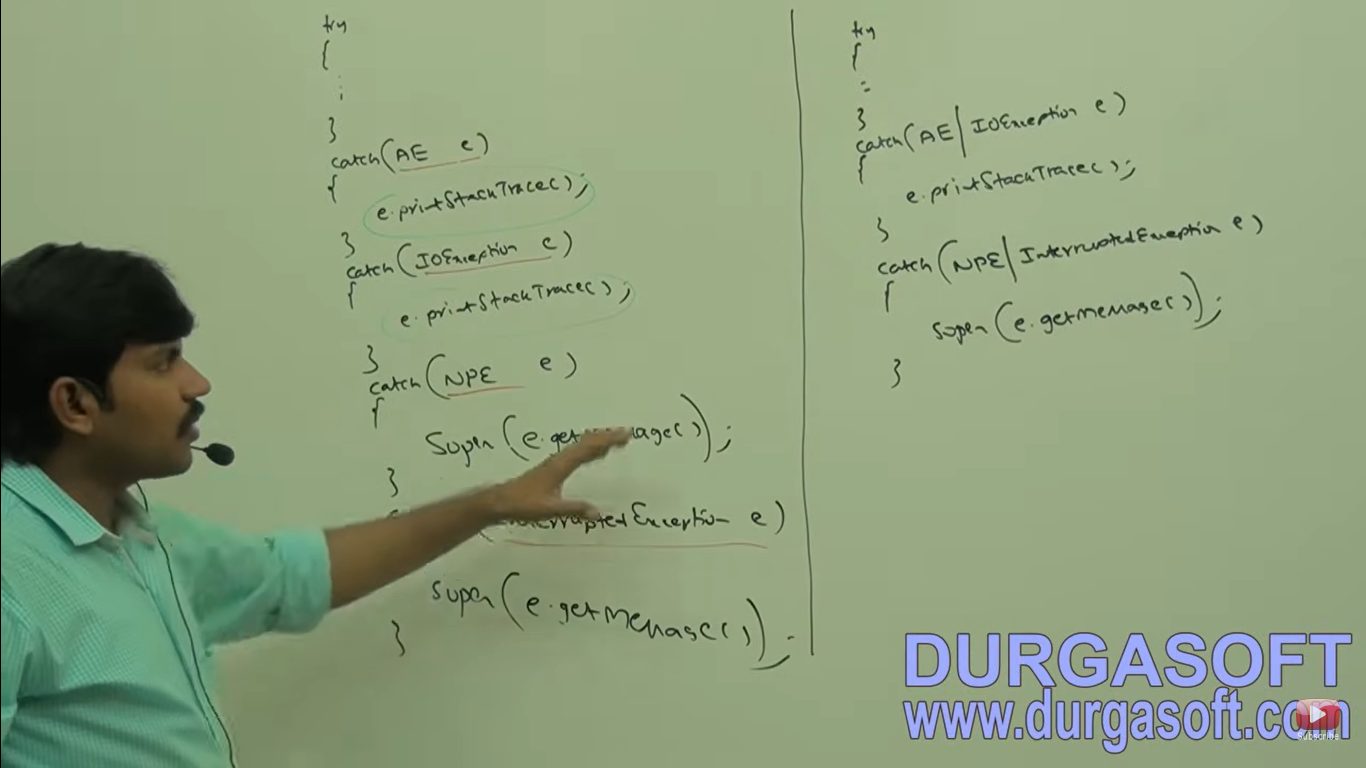 try
{
:
}
catch(AE e)
{
e.printStackTrace();
}
catch(IOException e)
{
e.printStackTrace();
}
catch(NPE e)
{
Sopln(e.get age());
}
InterruptedException e)
Sopln(e.getMessage());
}
try
{
=
}
catch(AE|IOException e)
{
e.printStackTrace();
}
catch(NPE|InterruptedException e)
{
Sopln(e.getMessage());
}
DURGASOFT
www.durgasoft.com
Subscribe